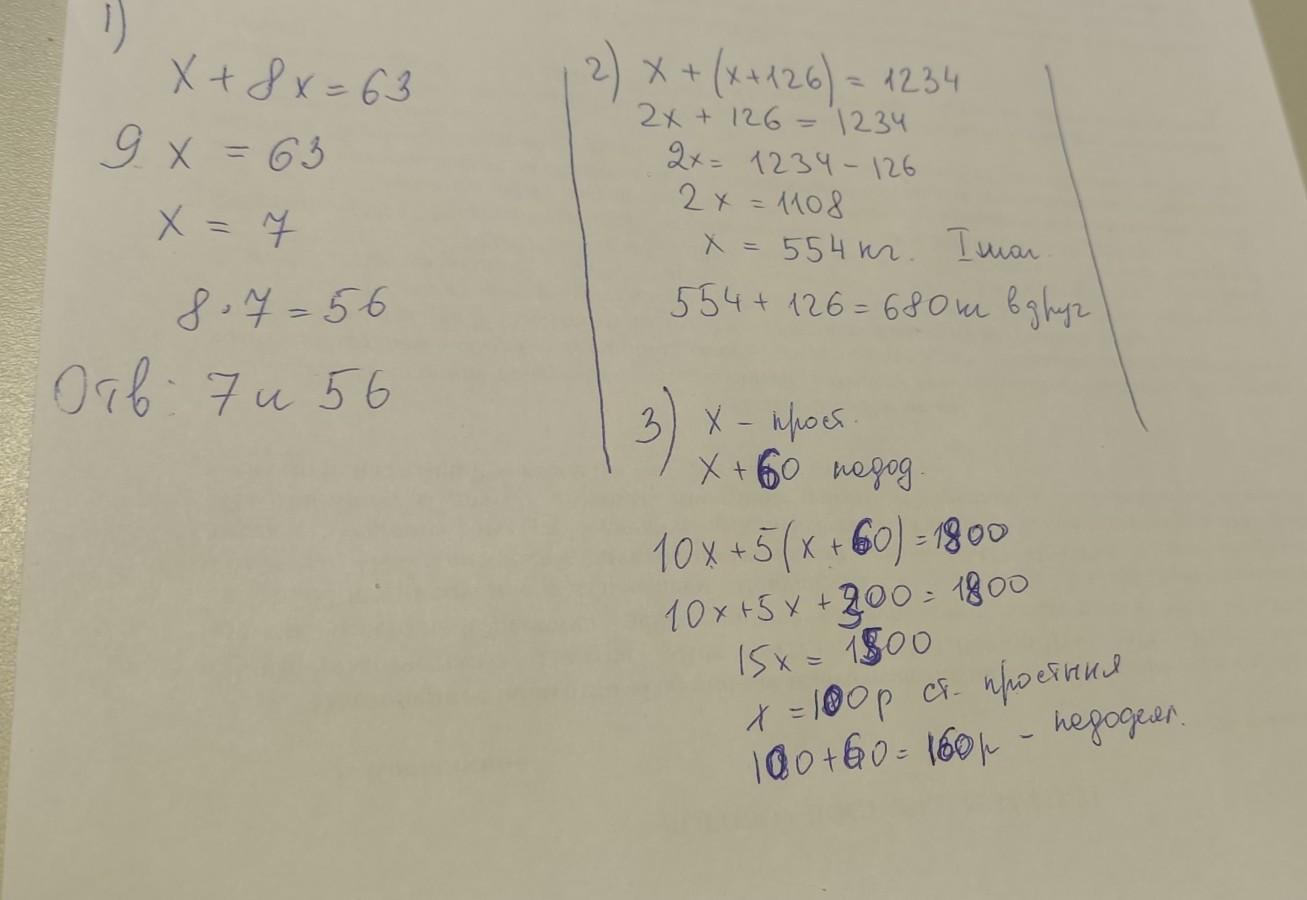 1)
x + 8x = 63
9 x = 63
x = 7
8 · 7 = 56
Отв: 7 и 56
2) x + (x+126) = 1234
2x + 126 = 1234
2x = 1234 - 126
2x = 1108
x = 554 кг. I маг.
554 + 126 = 680 кг в друг
3) x - прост.
x + 60 подод.
10x + 5(x + 60) = 1800
10x + 5x + 300 = 1800
15x = 1500
x = 100р ст. простыня
100 + 60 = 160р - пододеял.